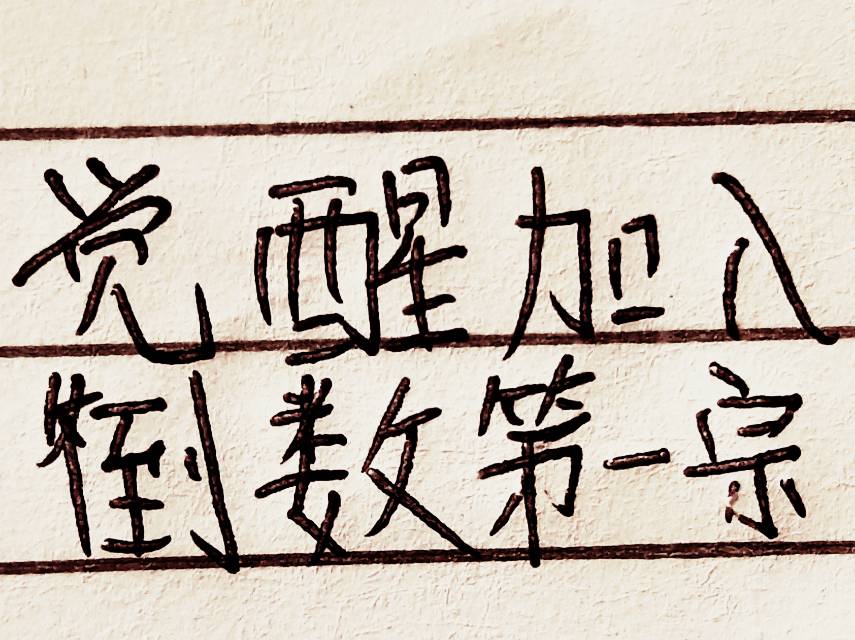 觉醒加入
倒数第一宗